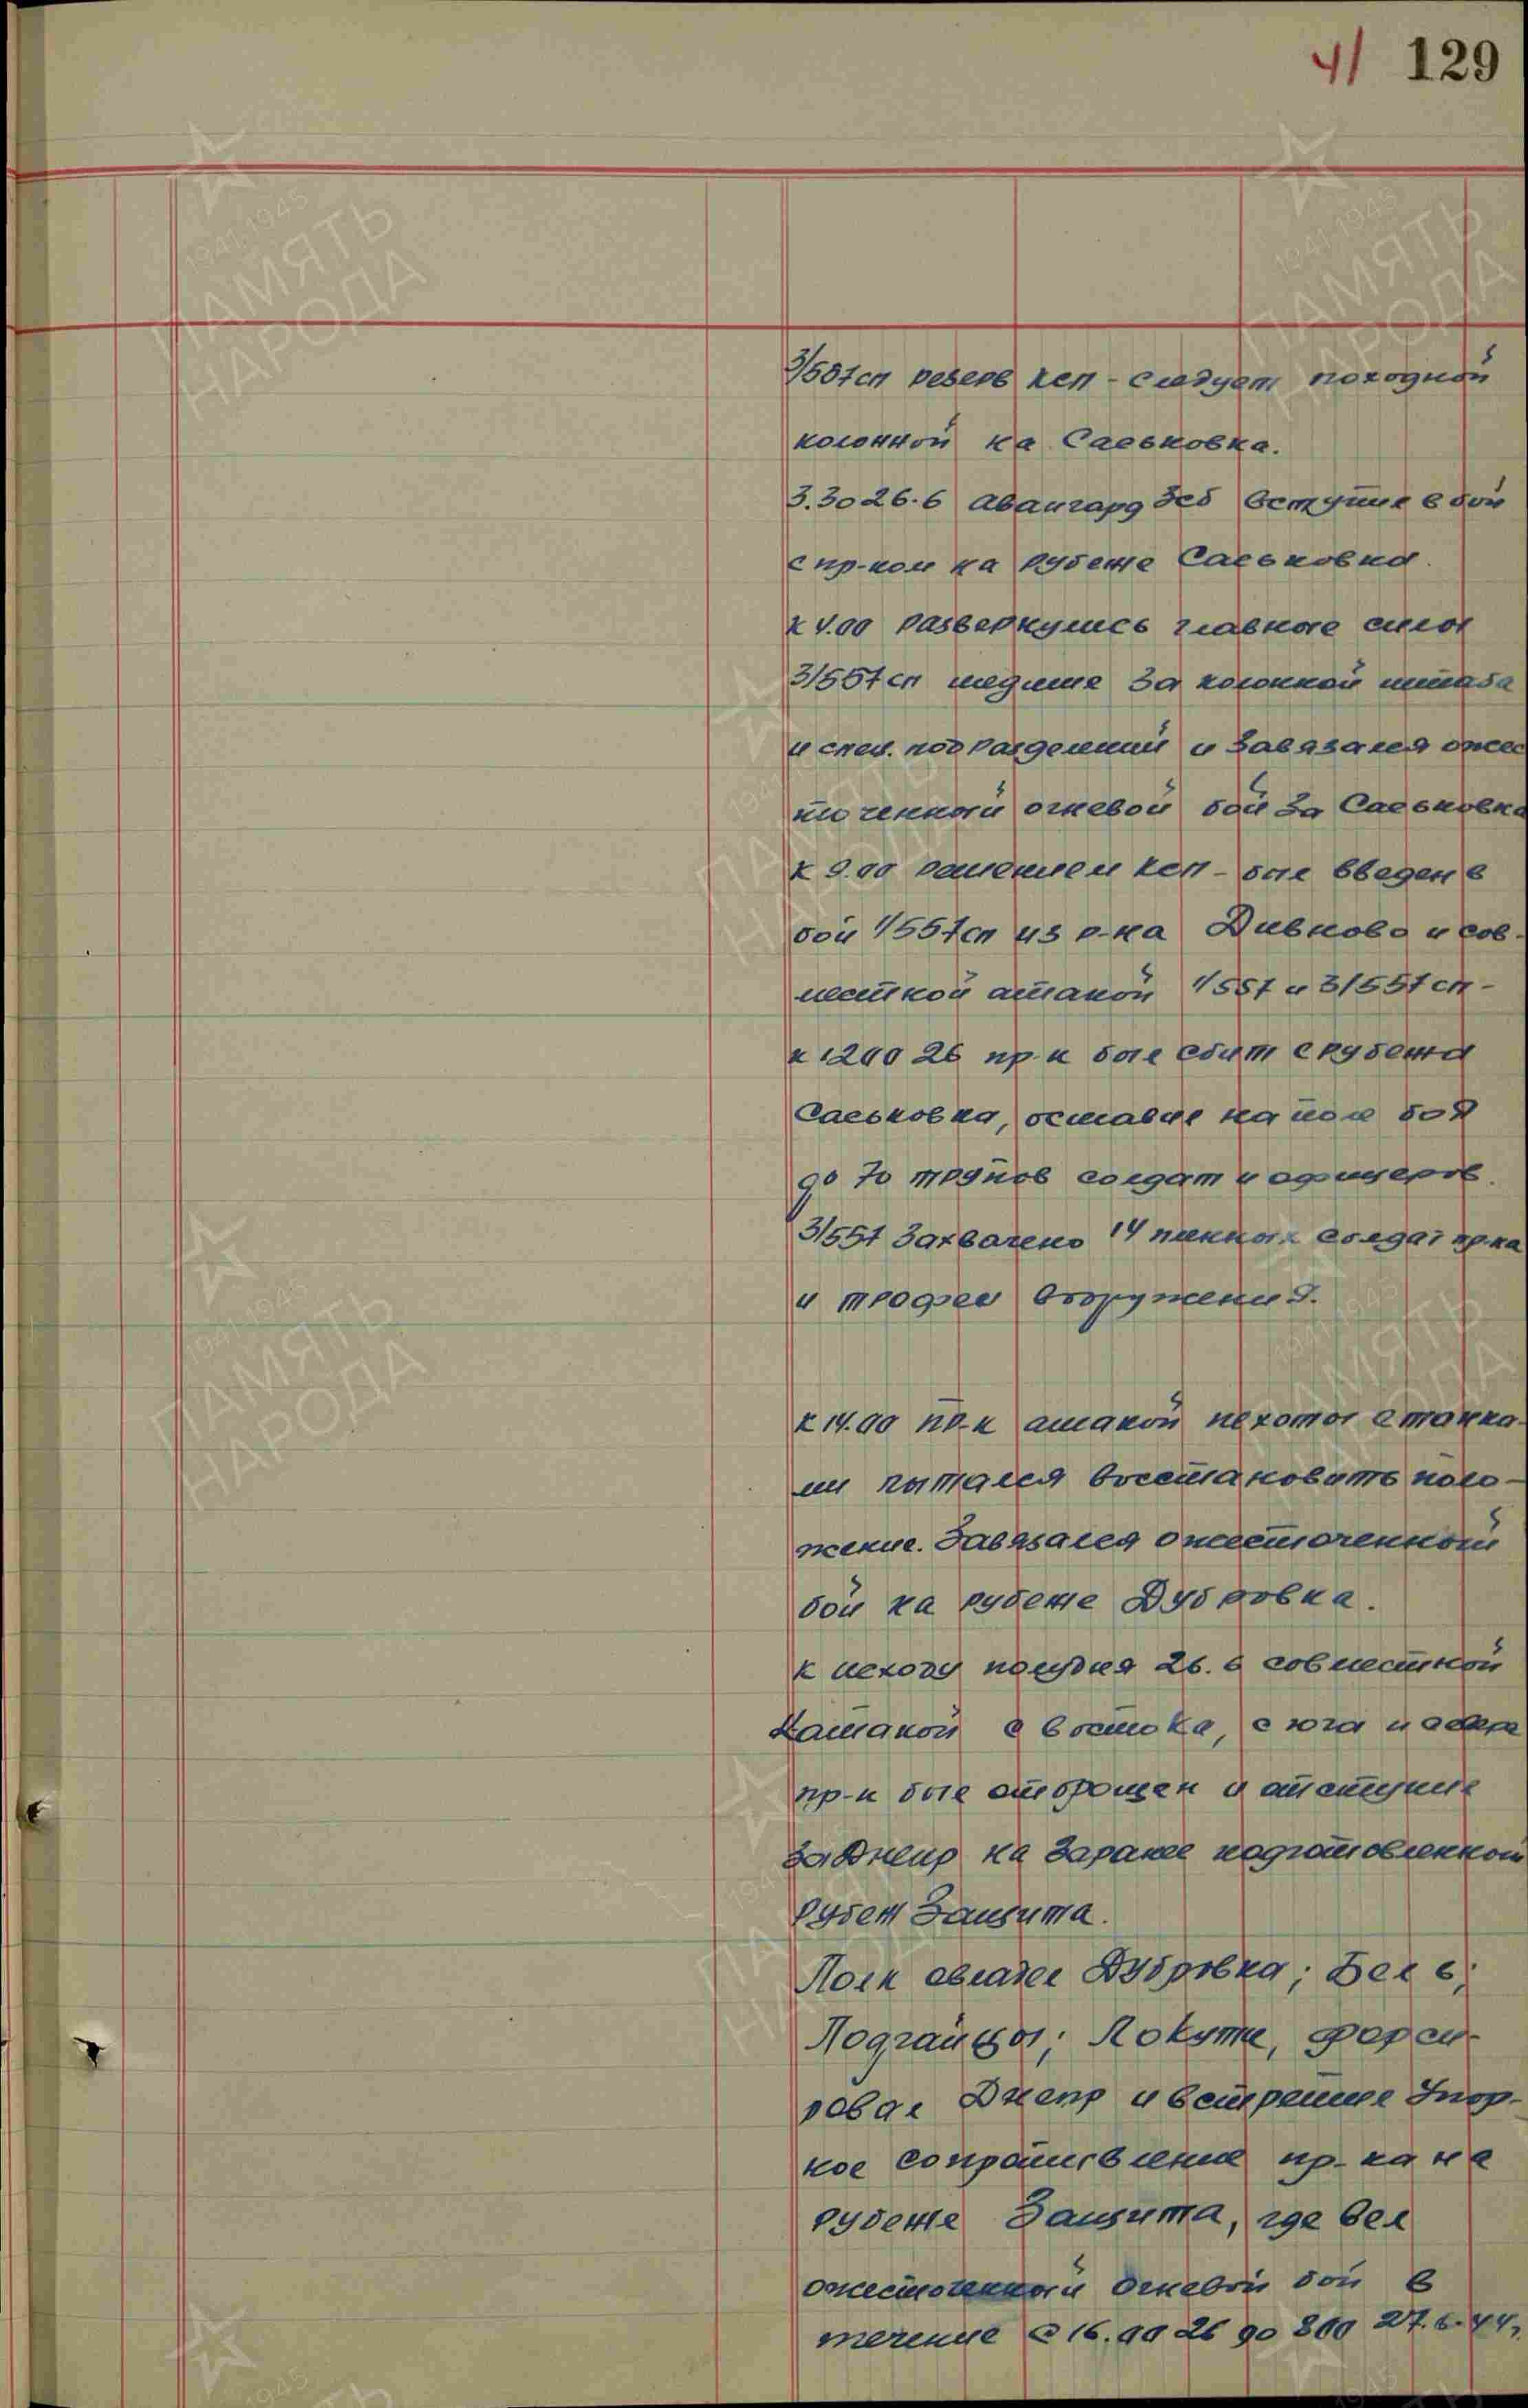 41 129
3/557сп резерв ксп - следует походной
колонной на Саськовка.
3.30 26.6 авангард 3сб вступил в бой
с пр-ком на рубеже Саськовка.
к 4.00 развернулись главные силы
3/557сп шедшие за колонной штаба
и спец. подразделений и завязался ожес
точенный огневой бой за Саськовка
к 9.00 решением ксп - был введен в
бой 1/557сп из р-на Дивново и сов-
местной атакой 1/557 и 3/557 сп -
к 1200 26 пр-к был сбит с рубежа
Саськовка, оставив на поле боя
до 70 трупов солдат и офицеров.
3/557 захвачено 14 пленных солдат пр-ка
и трофеи вооружения.
к 14.00 пр-к атакой пехоты с танка-
ми пытался восстановить поло-
жение. Завязался ожесточенный
бой на рубеже Дубровка.
к исходу полудня 26.6 совместной
атакой с востока, с юга и севера
пр-к был отброшен и отступил
за Днепр на заранее подготовленный
рубеж Защита.
Полк овладел Дубровка; Бель;
Подгайцы; Локути, форси-
ровал Днепр и встретил упор-
ное сопротивление пр-ка на
рубеже Защита, где вел
ожесточенный огневой бой в
течение с 16.00 26 до 800 27.6.44г.
ПАМЯТЬ НАРОДА
1941-1945